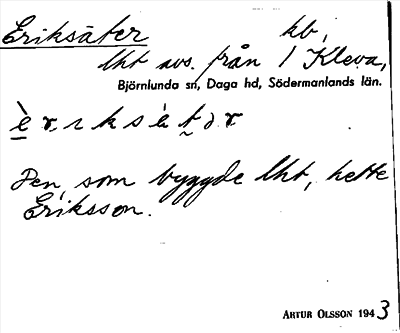 Eriksäter kb,
lht avs. från 1 Kleva,
Björnlunda sn, Daga hd, Södermanlands län.
è r ı k s è t ə r
Den, som byggde lht, hette
Eriksson.
ARTUR OLSSON 1943